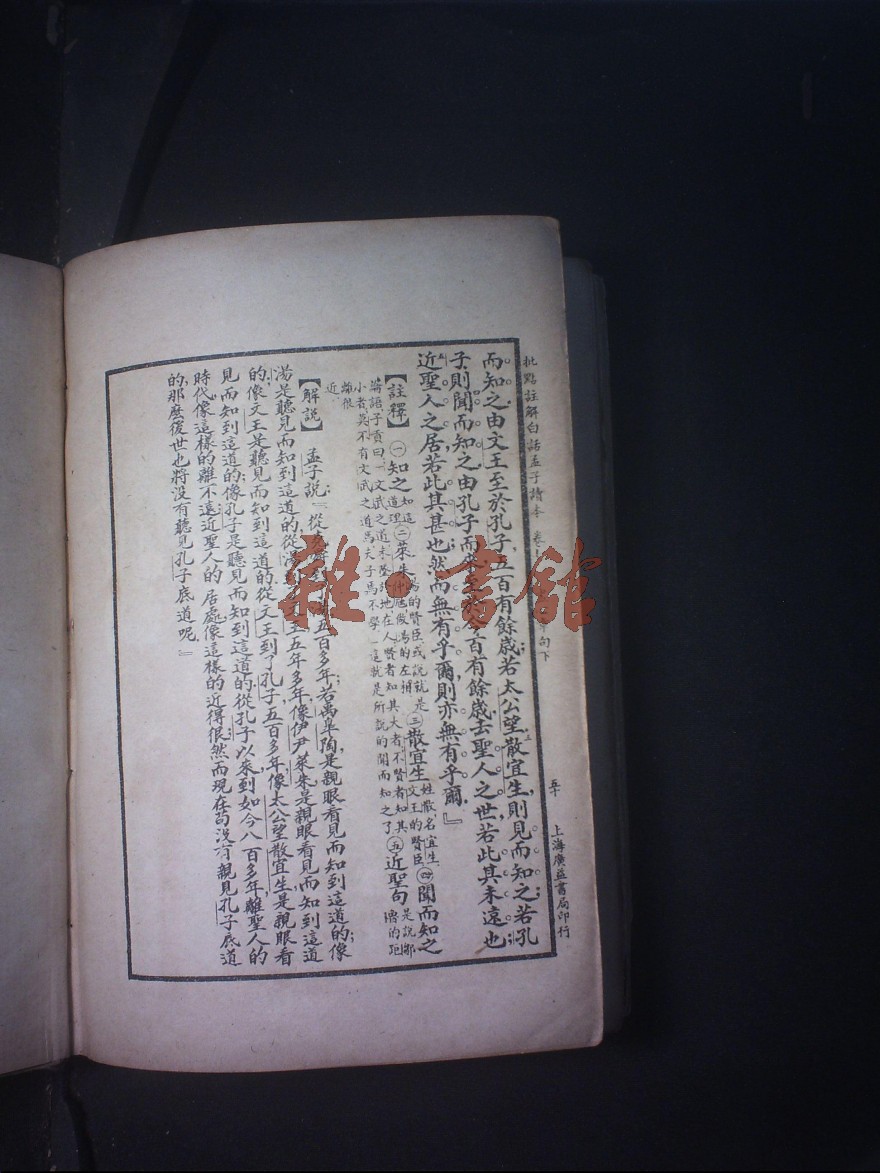 批點註解白話孟子讀本 卷 章句下 五十 上海廣益書局印行
而知之由文王至於孔子五百有餘歲若太公望散宜生則見而知之若孔
子則聞而知之由孔子而來至於今百有餘歲去聖人之世若此其未遠也
近聖人之居若此其甚也然而無有乎爾則亦無有乎爾』
【註釋】㊀知之 如這道理 ㊁萊朱 湯的賢臣或說就是仲虺做湯的左相 ㊂散宜生 姓散名宜生文王的賢臣 ㊃聞而知之
論語子貢曰「文武之道未墜於地在人賢者知其大者不賢者知其小者莫不有文武之道焉夫子焉不學」這就是所說的聞而知之了 ㊄近聖句 是說鄒魯的距離很近
【解說】孟子說『從 五百多年若禹皋陶是親眼看見而知到這道的像
湯是聽見而知到這道的從湯到 王五年多年像伊尹萊朱是親眼看見而知到這道
的像文王是聽見而知到這道的從文王到了孔子五百多年像太公望散宜生是親眼看
見而知到這道的像孔子是聽見而知到這道的從孔子以來到如今八百多年離聖人的
時代像這樣的離不遠近聖人的居處像這樣的近得很然而現在苟沒有親見孔子底道
的那麼後世也將沒有聽見孔子底道呢』
雜·書館